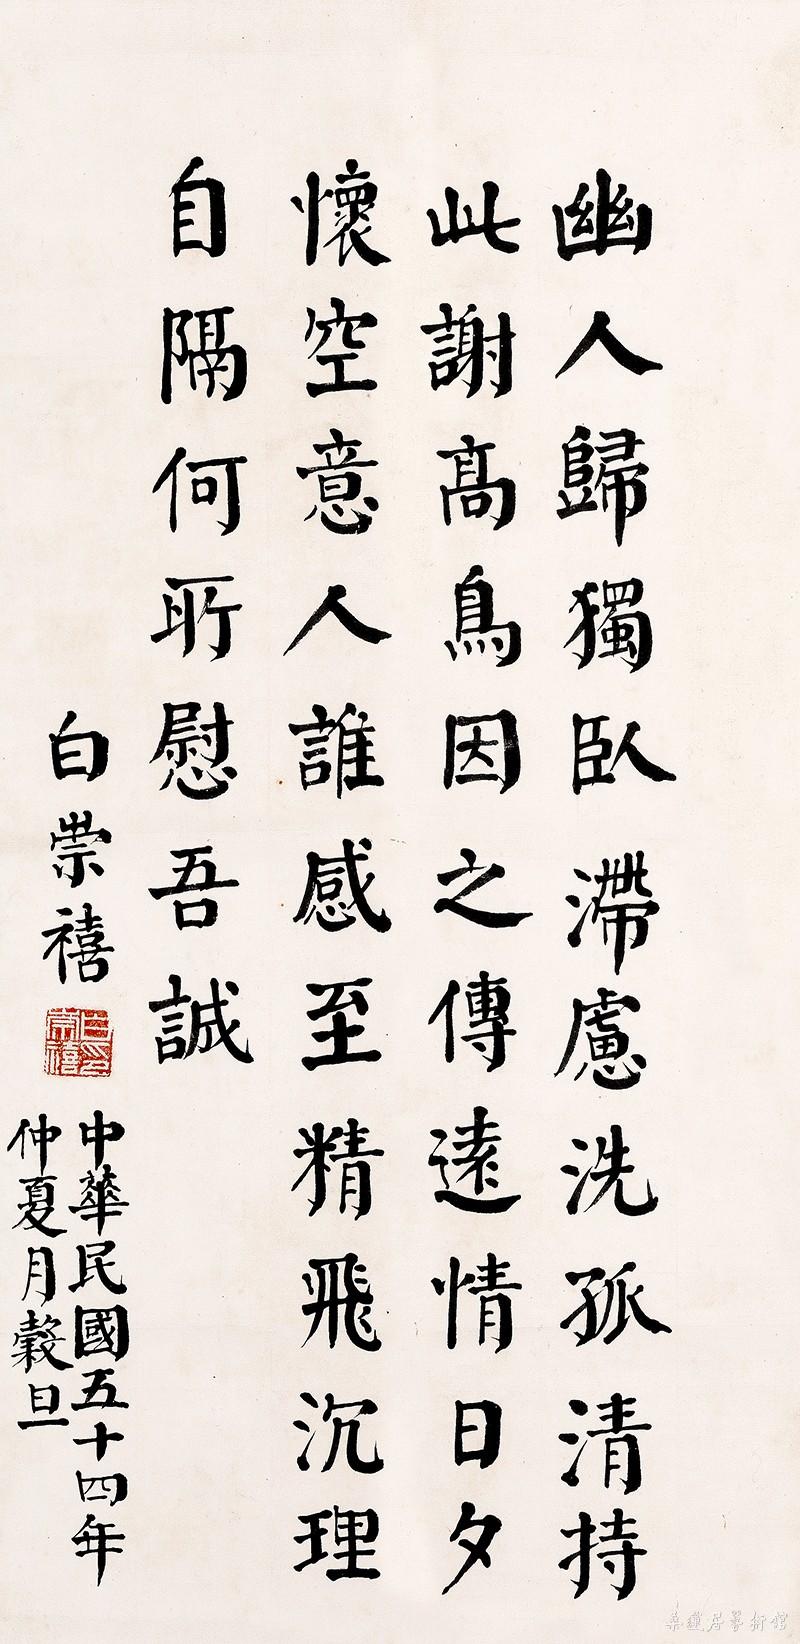 幽人歸獨臥滯慮洗孤清持
此謝高鳥因之傳遠情日夕
懷空意人誰感至精飛沉理
自隔何所慰吾誠
白崇禧
白崇禧印
中華民國五十四年
仲夏月穀旦
藥蓮居藝術館